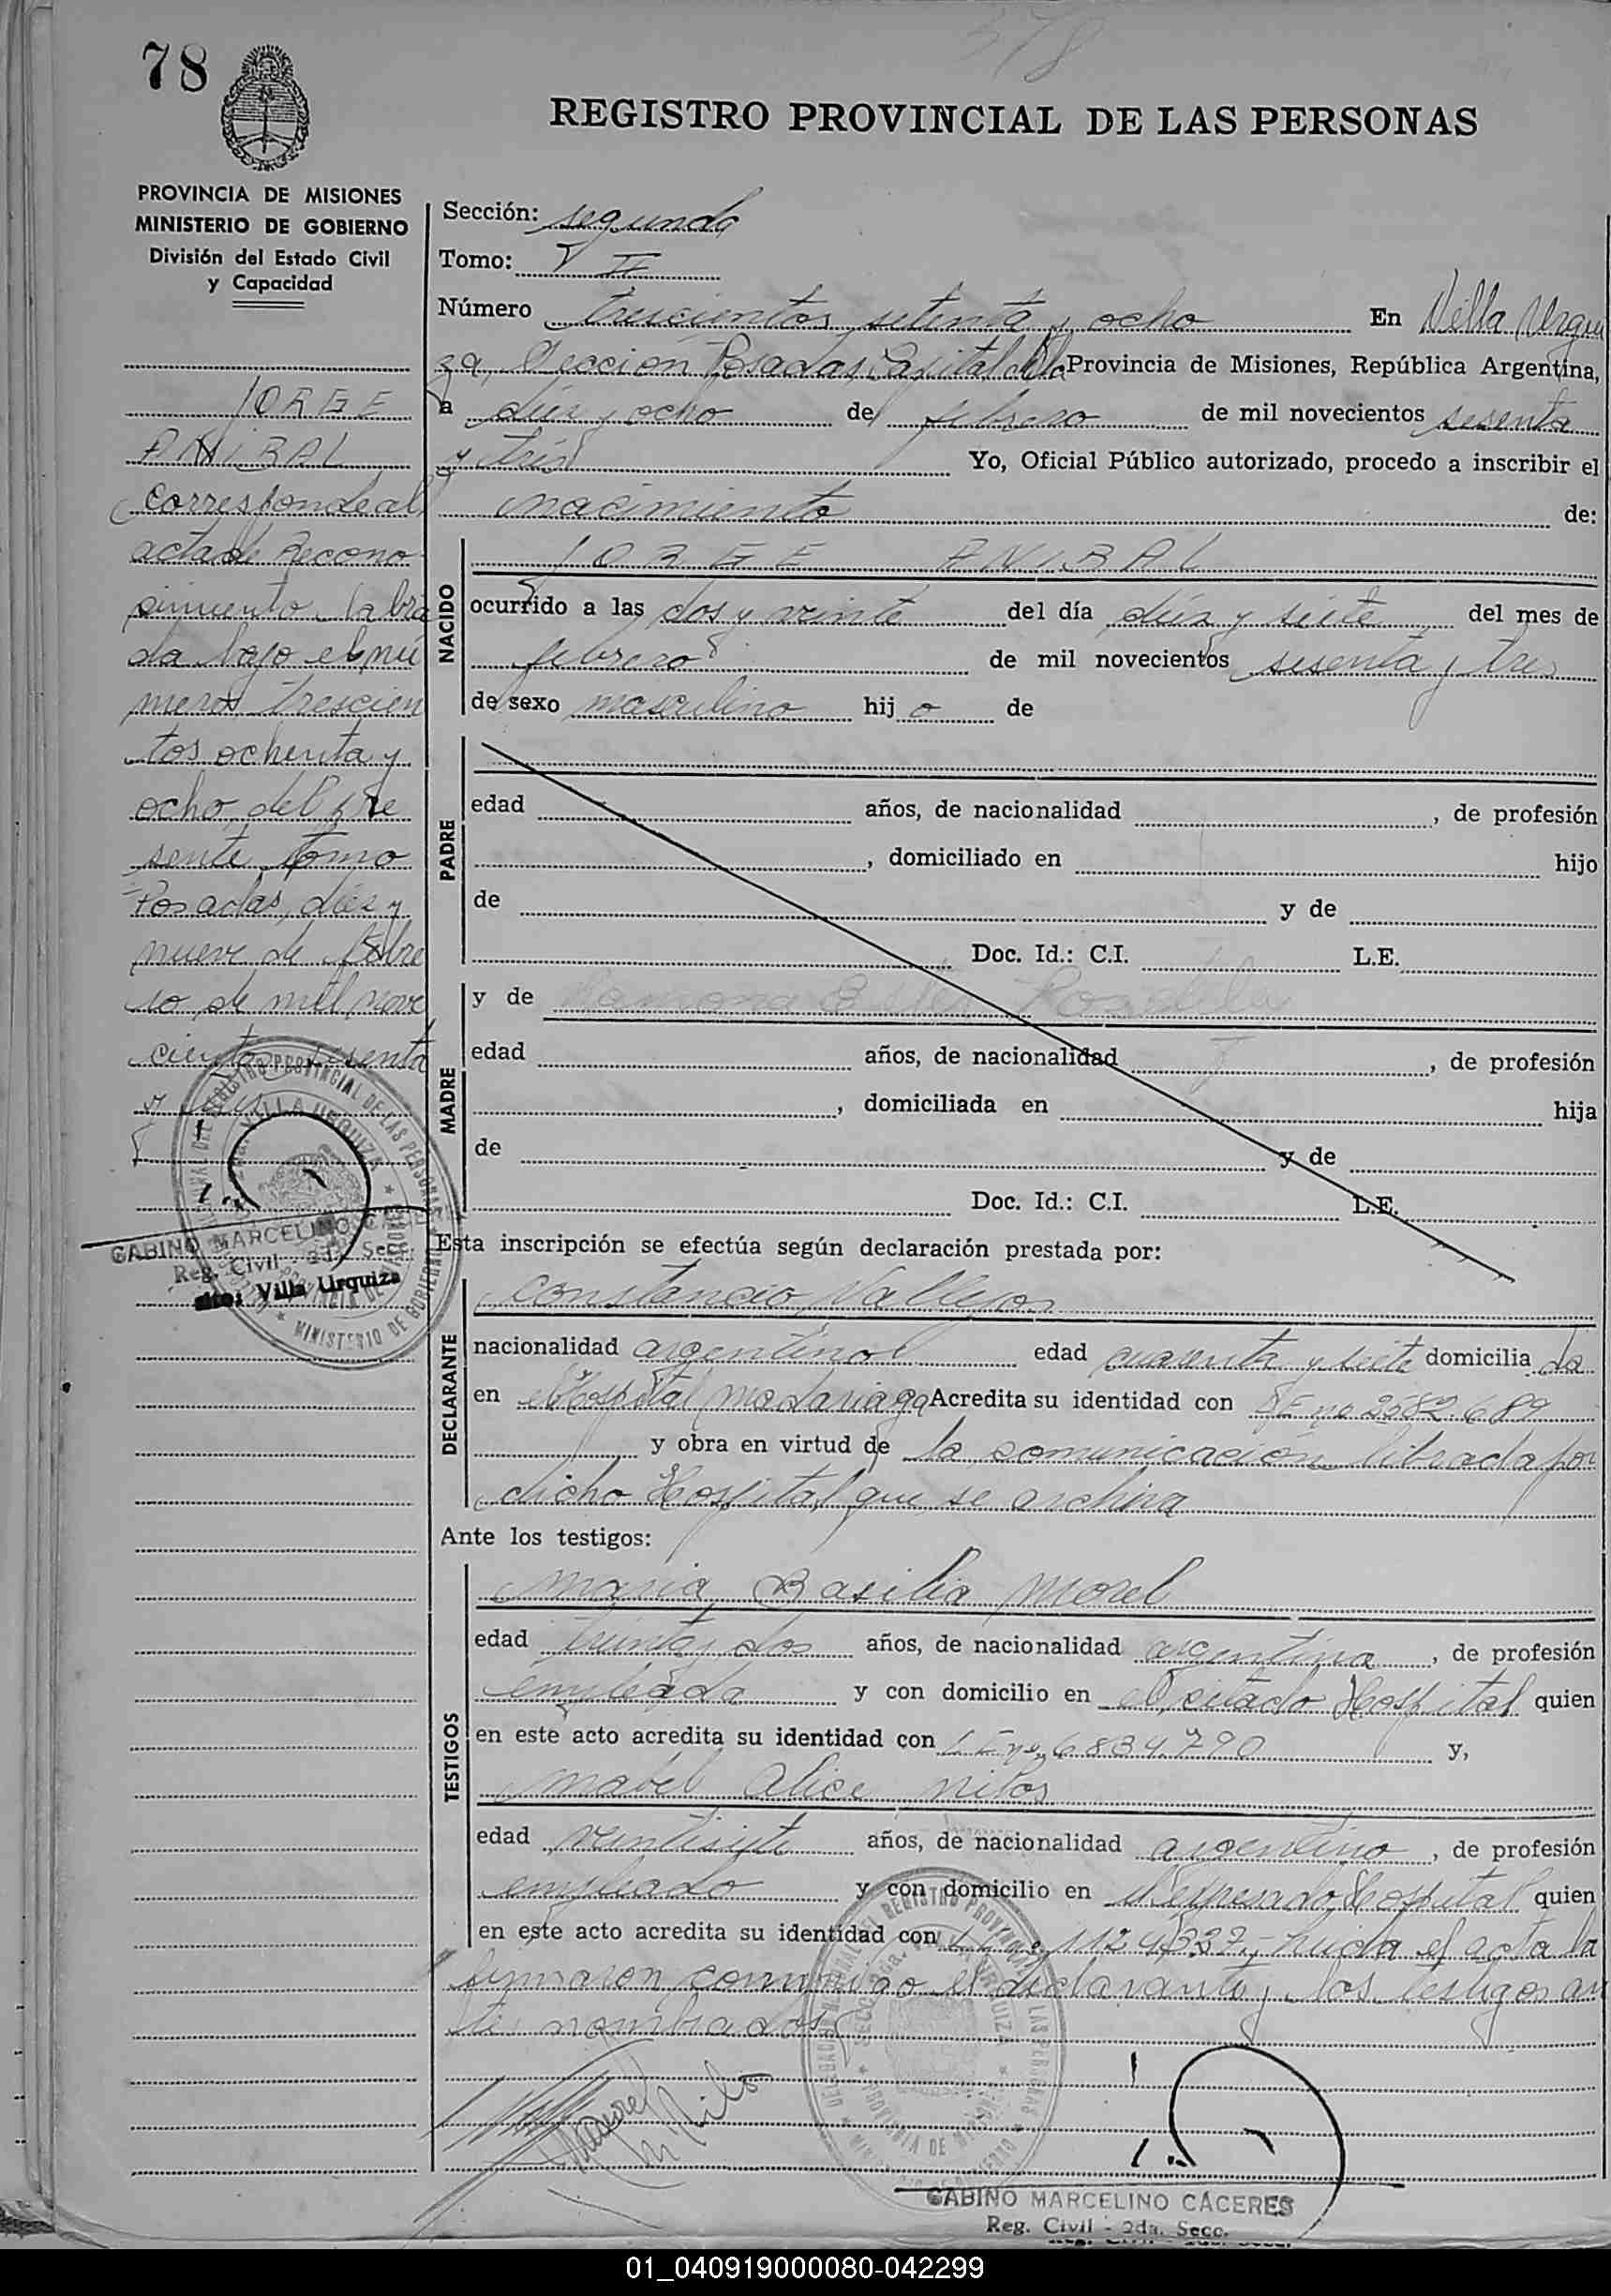 78
378
REGISTRO PROVINCIAL DE LAS PERSONAS
PROVINCIA DE MISIONES
MINISTERIO DE GOBIERNO
División del Estado Civil
y Capacidad
JORGE
ANIBAL
Corresponde al
acta de Recono
simiento labra
da bajo el nú
mero trescien
tos ochenta y
ocho, del pre
sente tomo
Posadas, diez y
nueve de febre
ro de mil nove
cientos sesenta
y
GABINO MARCELINO CACERES
Reg. Civil - 2da. Secc.
Villa Urquiza
Sección: segunda
Tomo: II
Número trescientos setenta y ocho En Villa Urqui
za, Sección Posadas, Capital de la Provincia de Misiones, República Argentina,
a diez y ocho de febrero de mil novecientos sesenta
y tres Yo, Oficial Público autorizado, procedo a inscribir el
nacimiento de:
NACIDO
JORGE ANIBAL
ocurrido a las dos y veinte del día diez y siete del mes de
febrero de mil novecientos sesenta y tres
de sexo masculino hij o de
PADRE
edad años, de nacionalidad , de profesión
, domiciliado en hijo
de y de
Doc. Id.: C.I. L.E.
MADRE
y de Ramona
edad años, de nacionalidad , de profesión
, domiciliada en hija
de y de
Doc. Id.: C.I. L.E.
Esta inscripción se efectúa según declaración prestada por:
DECLARANTE
Constancio Vallejos
nacionalidad argentino edad cuarenta y siete domicilia do
en el Hospital Madariaga Acredita su identidad con no 2582.689
y obra en virtud de la comunicación librada por
dicho Hospital que se archiva
Ante los testigos:
TESTIGOS
Maria Basilia Morel
edad treinta y dos años, de nacionalidad argentina , de profesión
empleada y con domicilio en el citado Hospital quien
en este acto acredita su identidad con 6834.790 y,
Mabel Alice Milos
edad veintisiete años, de nacionalidad argentino , de profesión
empleado y con domicilio en el expresado Hospital quien
en este acto acredita su identidad con el acta la
firmaron conmigo el declarante y los testigos an
tes nombrados
GABINO MARCELINO CACERES
Reg. Civil - 2da. Secc.
01_040919000080-042299